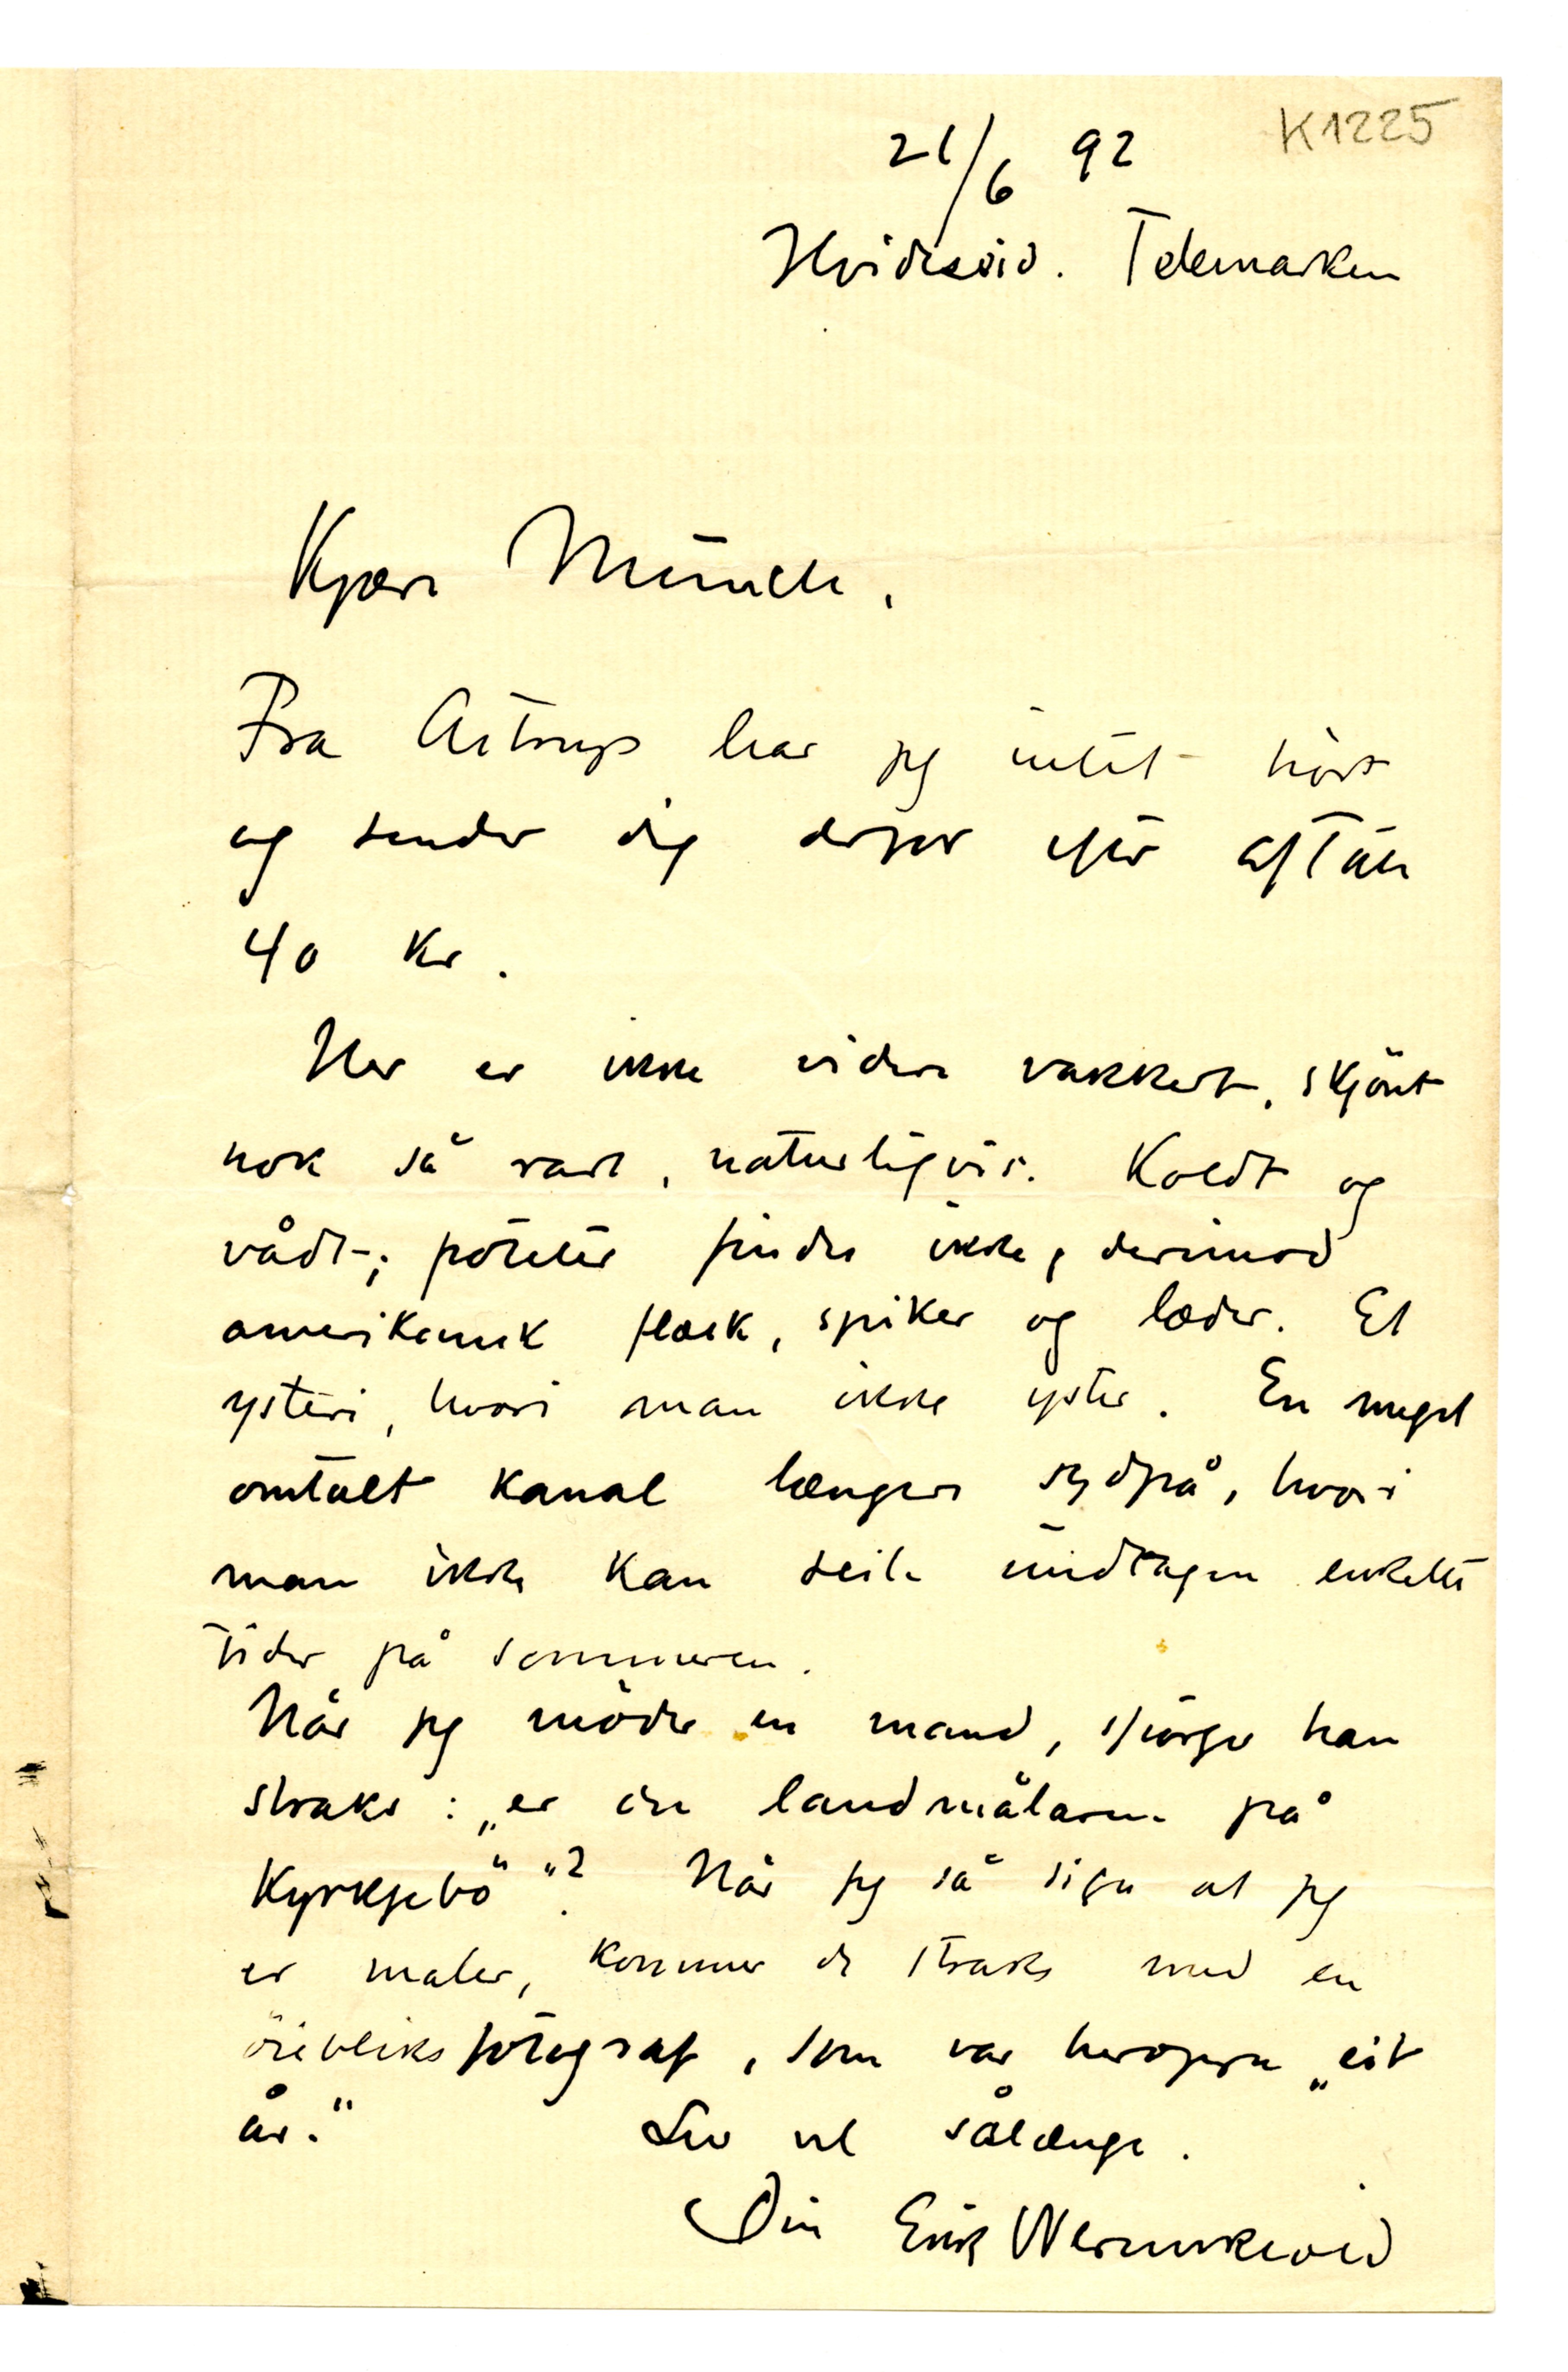 K1225
21/6 92
Hvideseid. Telemarken
Kjære Munch.
Fra Astrup har jeg intet hört
og sender dig derfor efter aftale
40 Kr.
Her er ikke videre vakkert, skjönt
nok så rart, naturligvis. Koldt og
vådt; poteter findes ikke, derimod
amerikansk flæsk, spiker og læder. Et
ysteri, hvori man ikke yster. En meget
omtalt Kanal længere sydpå, hvori
man ikke kan seile undtagen enkelte
tider på sommeren.
Når jeg möder en mand, spörger han
straks: „er du landmålaren på
Kyrkjebö"? Når jeg så siger at jeg
er maler, kommer de straks med en
öiebliksfotograf, som var heroppe „eit
år."  Lev vel sålænge.
Din Erik Werenskiold